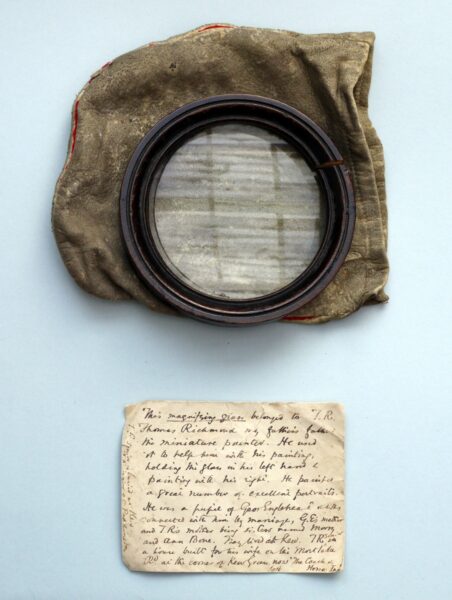 "This magnifying glass belonged to "T.R."
Thomas Richmond my father's father
the miniature painter. He used
it to help him with his painting,
holding the glass in his left hand &
painting with his right. He painted
a great number of excellent portraits.
He was a pupil of Geo: Engleheart &
connected with him by marriage, G.E's mother
and T.R's mother being sisters named Mary
and Ann Bone. They lived at Kew. T.R. in
a house built for his wife on the Mortlake
Rd at the corner of Kew Green, now "The Coach &
Horses Inn